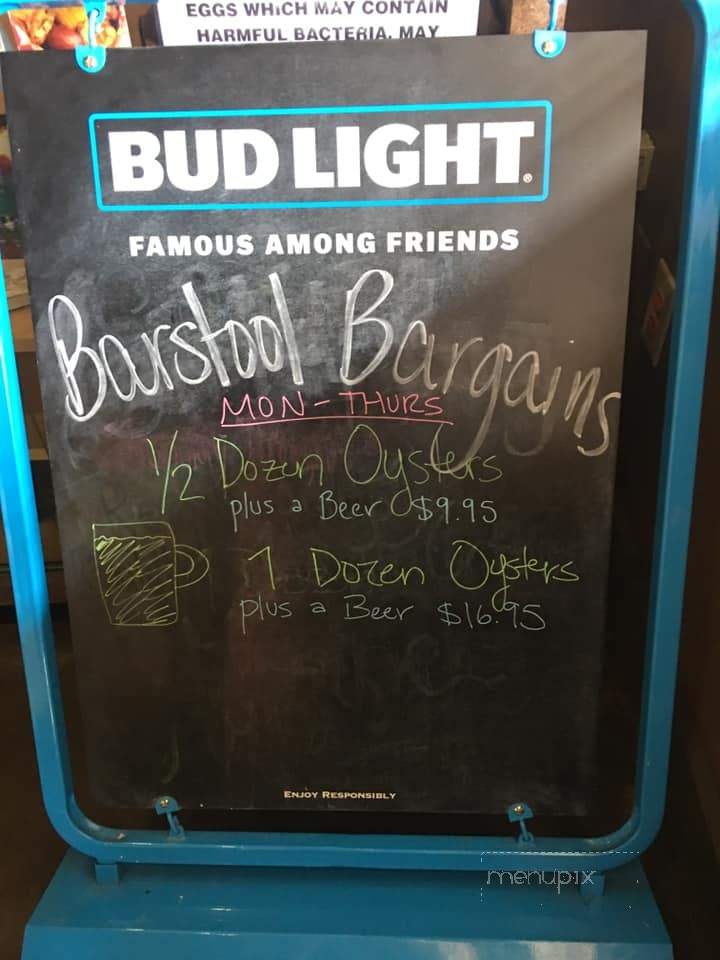 EGGS WHICH MAY CONTAIN
HARMFUL BACTERIA. MAY
BUD LIGHT®
FAMOUS AMONG FRIENDS
Barstool Bargains
MON-THURS
1/2 Dozen Oysters
plus a Beer $9.95
1 Dozen Oysters
plus a Beer $16.95
ENJOY RESPONSIBLY
menupix